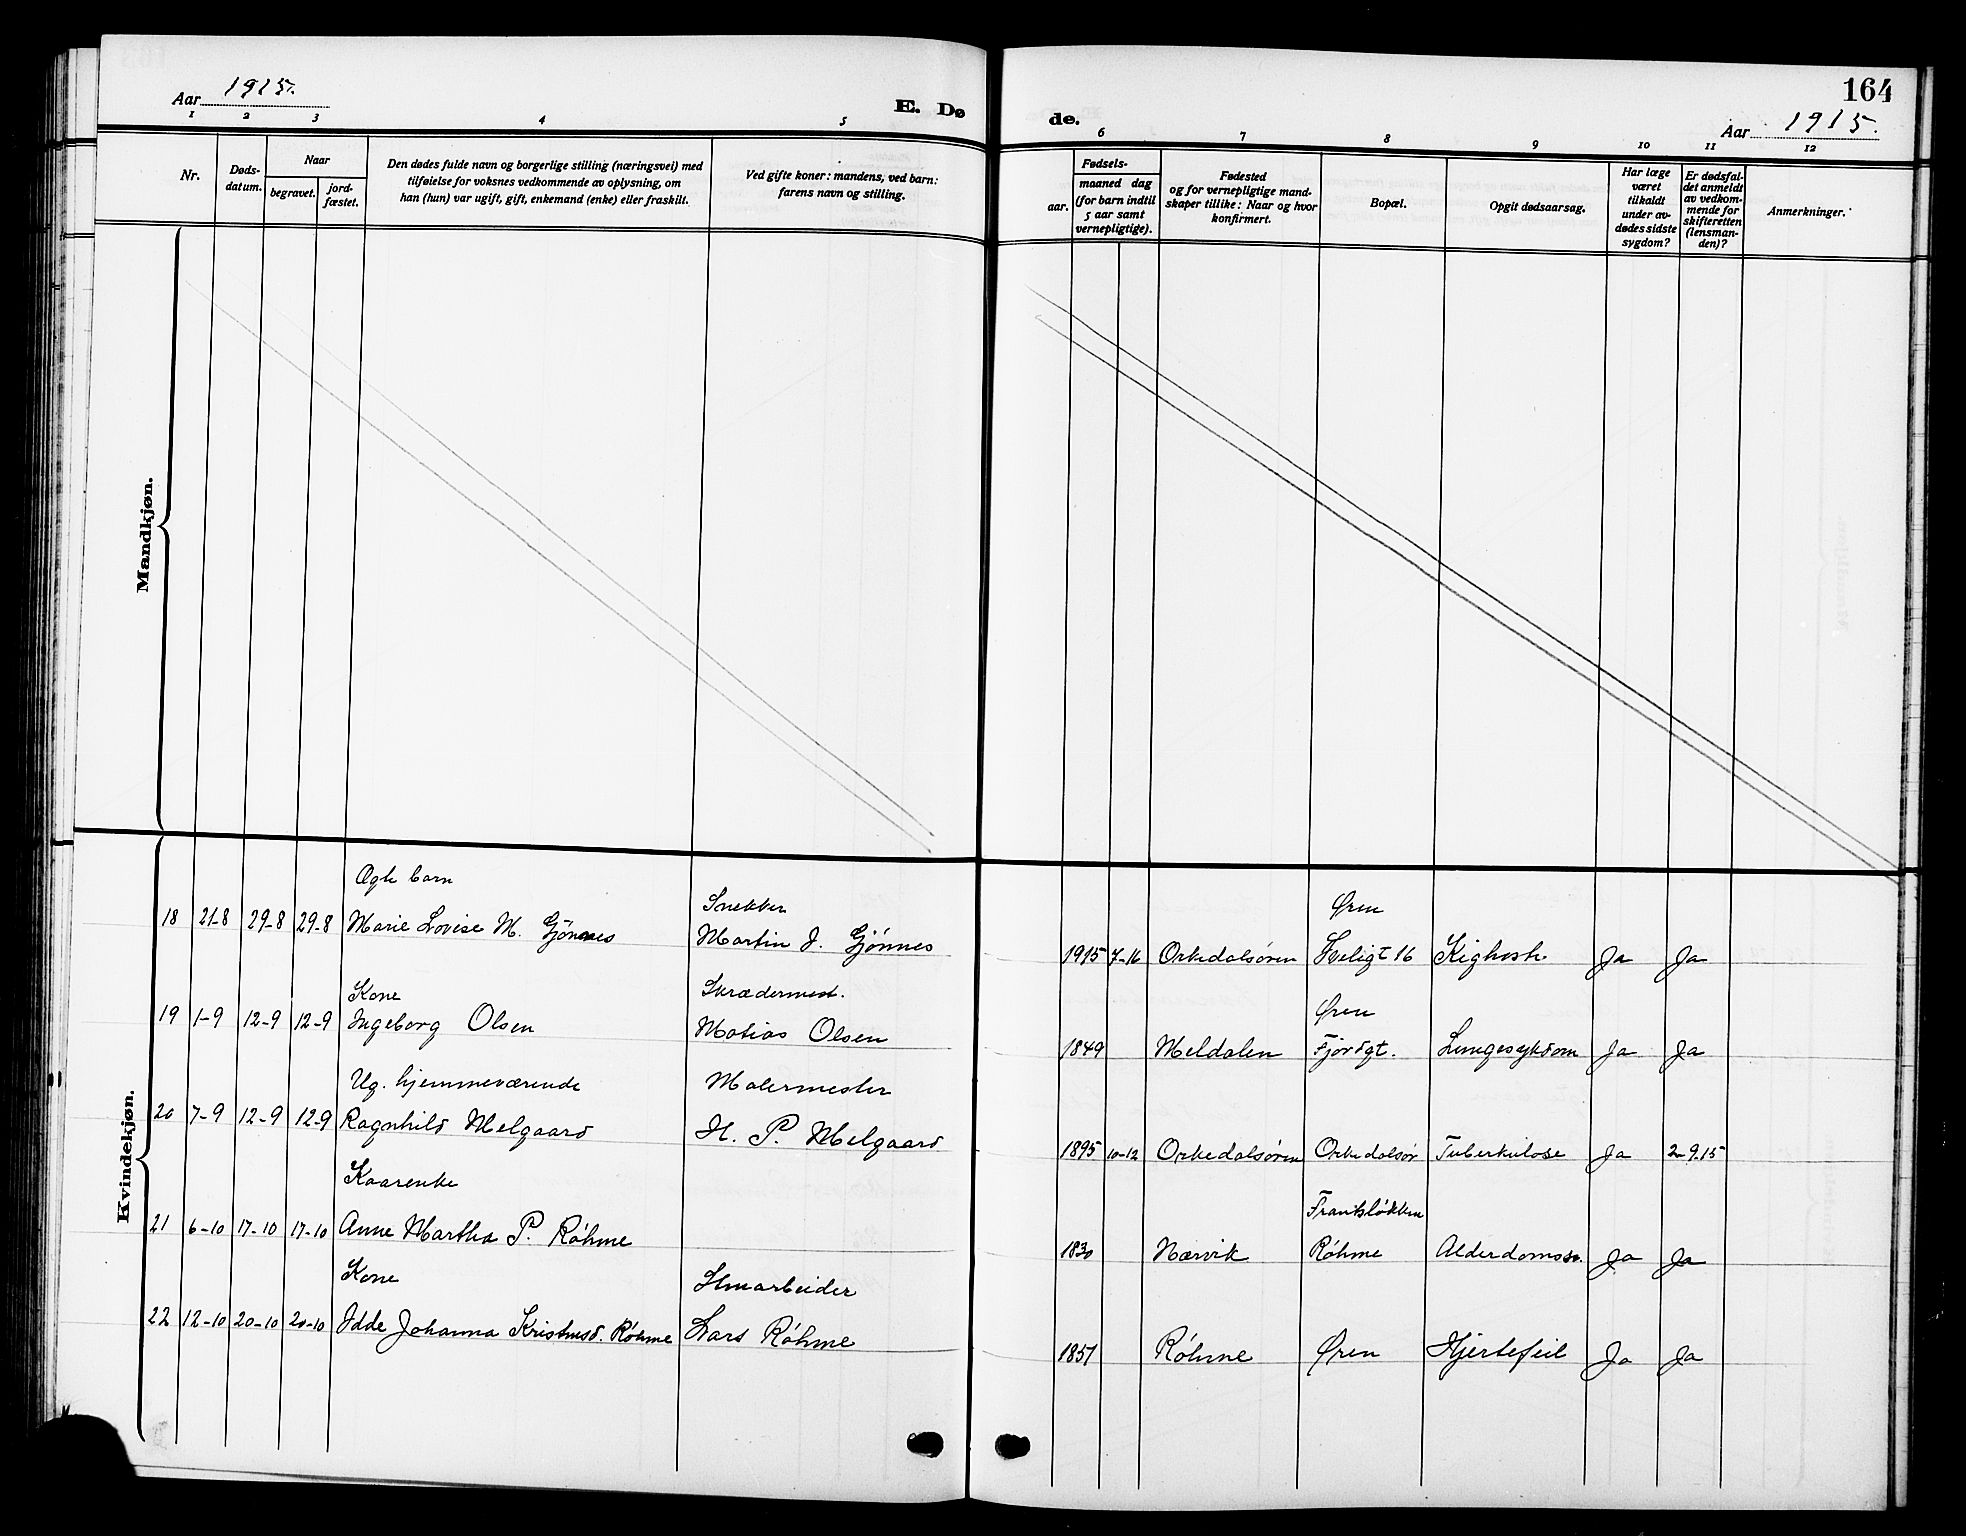 Aar 1915.
E. Dø
de.
164
Aar 1915.
1 2 3 4 5
6 7 8 9 10 11 12
Nr.
Døds-
datum.
Naar
begravet.
jord-
fæstet.
Den dødes fulde navn og borgerlige stilling (næringsvei) med
tilføielse for voksnes vedkommende av oplysning, om
han (hun) var ugift, gift, enkemand (enke) eller fraskilt.
Ved gifte koner: mandens, ved barn:
farens navn og stilling.
Fødsels-
aar.
maaned dag
(for barn indtil
5 aar samt
vernepligtige).
Fødested
og for vernepligtige mand-
skaper tillike: Naar og hvor
konfirmert.
Bopæl.
Opgit dødsaarsag.
Har læge
været
tilkaldt
under av-
dødes sidste
sygdom?
Er dødsfal-
det anmeldt
av vedkom-
mende for
skifteretten
(lensman-
den)?
Anmerkninger.
Mandkjøn.
Kvindekjøn.
Ægte barn Snekker Øren
18 21-8 29-8 29-8 Marie Lovise M. Gjönnes Martin J. Gjönnes 1915 7-16 Orkedalsøren 16 Kighoste Ja Ja
Kone Skrædermest. Øren
19 1-9 12-9 12-9 Ingeborg Olsen Matias Olsen 1849 Meldalen Fjordgt. Lungesykdom Ja Ja
Ug. hjemmeværende Malermester
20 7-9 12-9 12-9 Ragnhild Melgaard H. P. Melgaard 1895 10-12 Orkedalsøren Orkedalsør Tuberkulose Ja 2-9.15
Kaarenke
21 6-10 17-10 17-10 Anne Martha P. Röhme 1830 Nærvik Röhme Alderdomssv. Ja Ja
Kone
22 12-10 20-10 20-10 Idde Johanna Röhme Lars Röhme 1851 Röhme Øren Hjertefeil Ja Ja